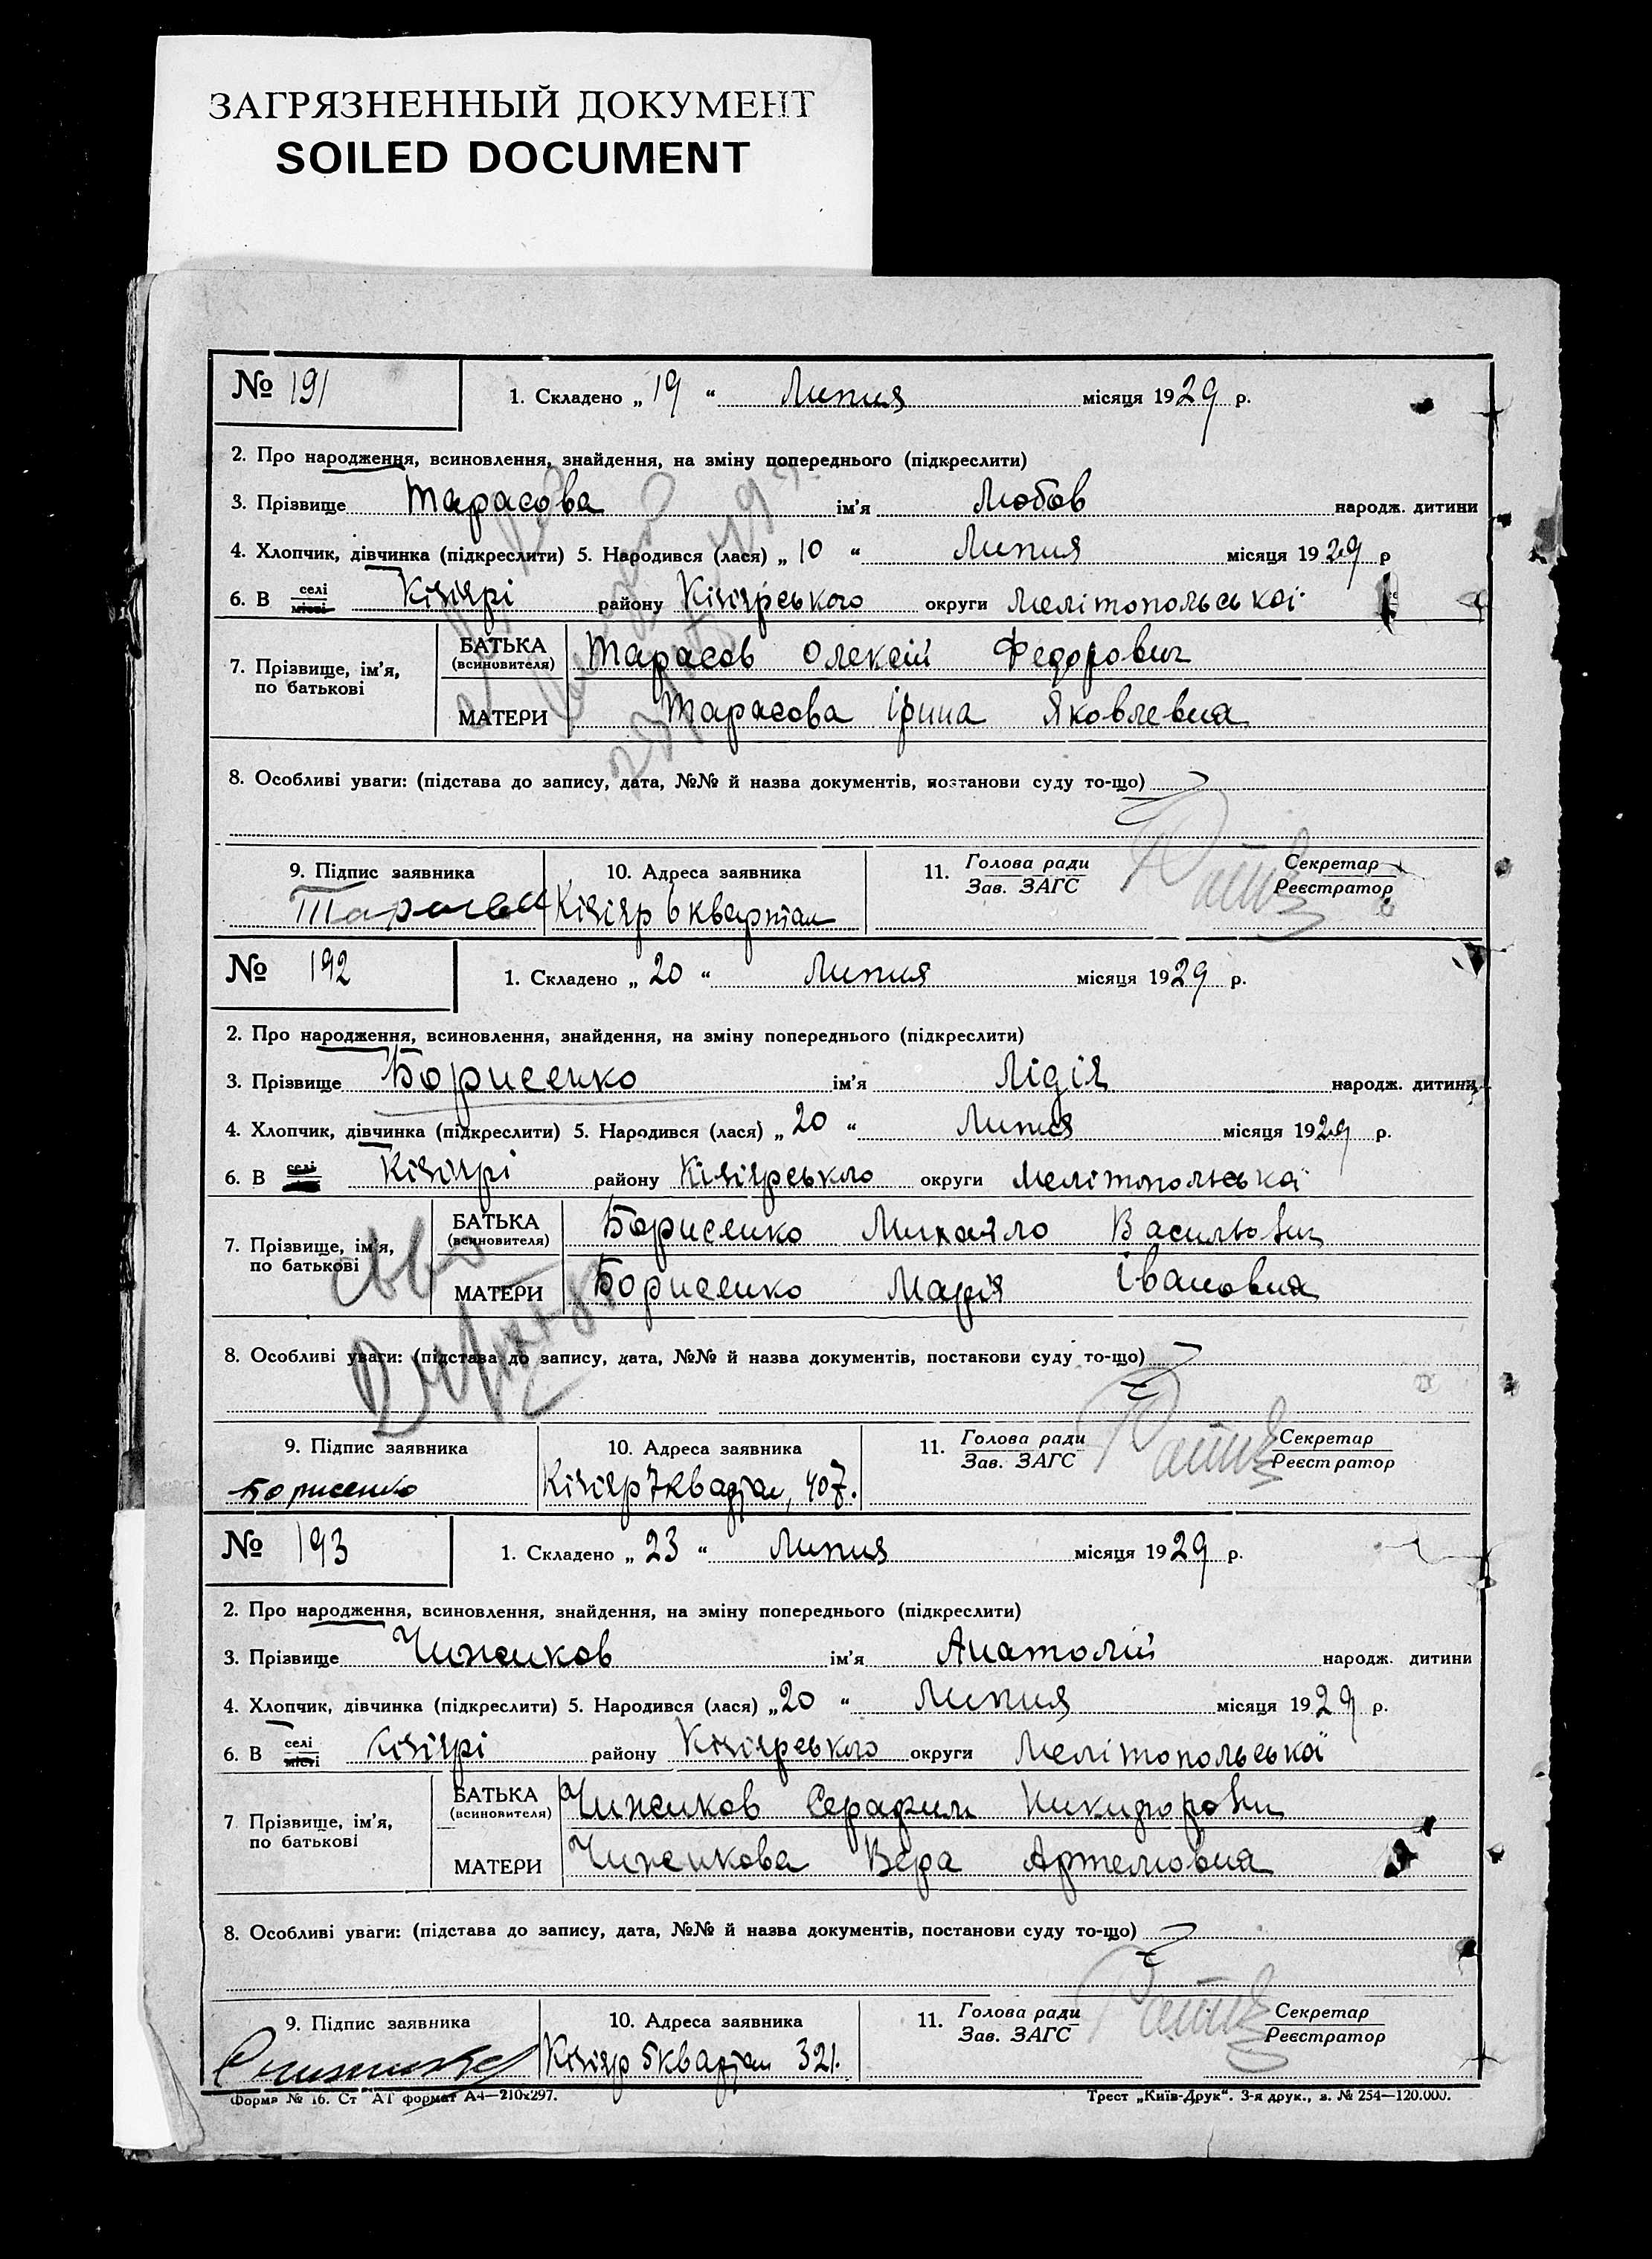 ЗАГРЯЗНЕННЫЙ ДОКУМЕНТ
SOILED DOCUMENT
№ 191 1. Складено „ 19 “ Липня місяця 1929 р.
2. Про народження, всиновлення, знайдення, на зміну попереднього (підкреслити)
3. Прізвище Тарасова ім'я Любов народж. дитини
4. Хлопчик, дівчинка (підкреслити) 5. Народився (лася) „ 10 “ Липня місяця 1929 р
6. В селі місті Кізіярі району Кізіярського округи Мелітопольської
7. Прізвище, ім'я, по батькові
БАТЬКА (всиновителя) Тарасов Олексій Федорович
МАТЕРИ Тарасова Ірина Яковлевна
8. Особливі уваги: (підстава до запису, дата, №№ й назва документів, постанови суду то-що)
9. Підпис заявника 10. Адреса заявника 11. Голова ради Зав. ЗАГС Секретар Реєстратор
Кізіяр 6 квартал
№ 192 1. Складено „ 20 “ Липня місяця 1929 р.
2. Про народження, всиновлення, знайдення, на зміну попереднього (підкреслити)
3. Прізвище Борисенко ім'я Лідія народж. дитини
4. Хлопчик, дівчинка (підкреслити) 5. Народився (лася) „ 20 “ Липня місяця 1929 р.
6. В селі Кізіярі району Кізіярського округи Мелітопольська
7. Прізвище, ім'я, по батькові
БАТЬКА (всиновителя) Борисенко Михайло Васильович
МАТЕРИ Борисенко Марія Івановна
8. Особливі уваги: (підстава до запису, дата, №№ й назва документів, постанови суду то-що)
9. Підпис заявника 10. Адреса заявника 11. Голова ради Зав. ЗАГС Секретар Реєстратор
Борисенко Кізіяр 7 квартал, 407.
№ 193 1. Складено „ 23 “ Липня місяця 1929 р.
2. Про народження, всиновлення, знайдення, на зміну попереднього (підкреслити)
3. Прізвище Чижиков ім'я Анатолій народж. дитини
4. Хлопчик, дівчинка (підкреслити) 5. Народився (лася) „ 20 “ Липня місяця 1929 р.
6. В селі місті Кізіярі району Кізіярського округи Мелітопольської
7 Прізвище, ім'я, по батькові
БАТЬКА (всиновителя) Чижиков Серафим Никифорович
МАТЕРИ Чижикова Вера Артемовна
8. Особливі уваги: (підстава до запису, дата, №№ й назва документів, постанови суду то-що)
9. Підпис заявника 10. Адреса заявника 11. Голова ради Зав. ЗАГС Секретар Реєстратор
Кізіяр 5 квартал 321.
Форма № 16. Ст АТ формат А4—210x297. Трест „Київ-Друк“. 3-я друк., з. № 254—120.000.